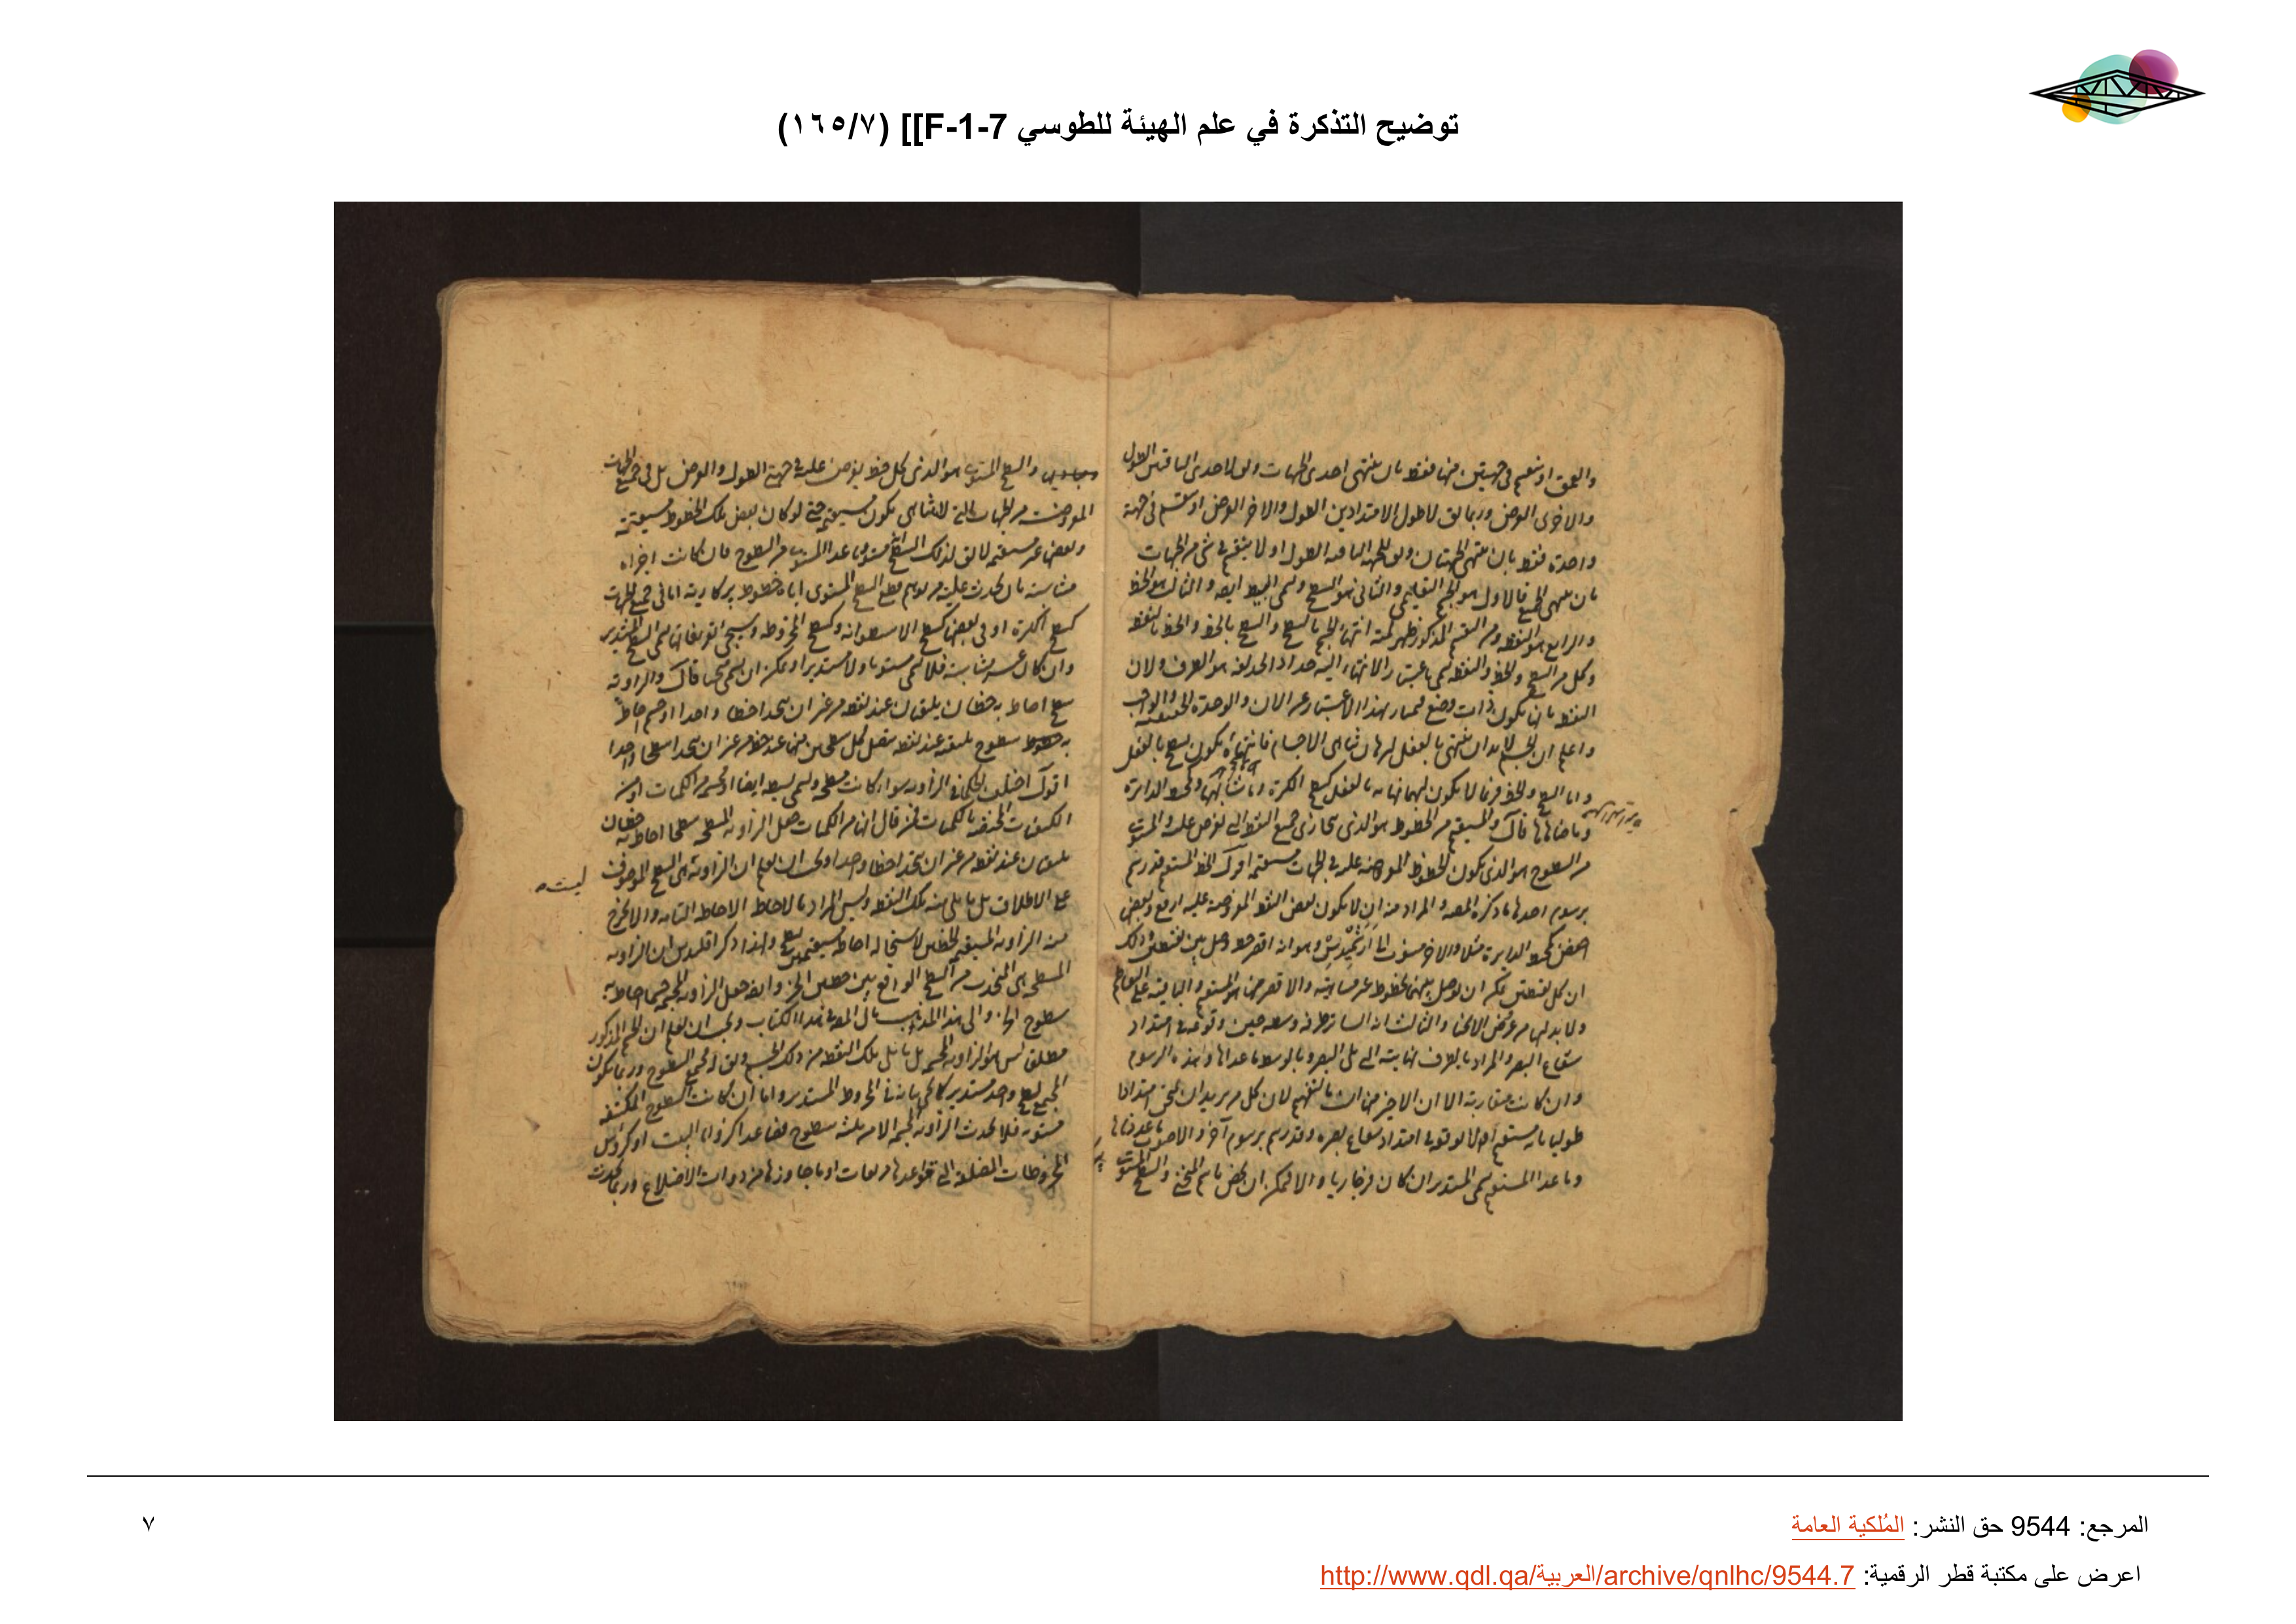 توضيح التذكرة في علم الهيئة للطوسي F-1-7]] (١٦٥/٧)
والعمق او ينقسم في جهتين منها فقط بان ينتهي احدى الجهات ويق لاحدى الباقيتين الطول
والاخرى العرض وربما يق لاطول الامتدادين الطول والاخر العرض او ينقسم في جهة
واحدة فقط بان ينتهي الجهتان ويق للجهة الباقية الطول او لا ينقسم في شئ من الجهات
بان ينتهي الجميع فالاول هو الجسم التعليمي والثاني هو السطح ويسمى البسيط ايضا والثالث هو الخط
والرابع هو النقطة ومن التقسيم المذكور ظهر انتهاء الجسم بالسطح والسطح بالخط والخط بالنقطة
وكل من السطح والخط والنقطة يسمى باعتبار الانتهاء اليه حدا اذ الحد هو الطرف ولان
النقطة بانها يكون ذات وضع يمتاز بهذا الاعتبار عن الان والوحدة
واعلم ان الجسم لابد ان ينتهي بالفعل لبرهان تناهى الاجسام فانتهاؤه يكون بسطح بالفعل
واما السطح والخط فربما لا يكون لهما نهاية بالفعل كسطح الكرة وما شابهها ومحيط الدائرة
وما ضاهاها قال والمستقيم من الخطوط هو الذي يحاذى جميع النقط التي يفرض عليه والمستوى
من السطوح هو الذي يكون الخطوط المفروضة عليه في الجهات مستقيمة اقول الخط المستقيم قد رسم
برسوم احدها ما ذكره المصـ والمراد منه ان لا يكون بعض النقط المفروضة عليه ارفع وبعض
اخفض كمحيط الدايرة مثلا والاخر منسوب الى ارشميدس وهو انه اقصر خط وصل بين نقطتين وذلك
ان كل نقطتين يمكن ان يوصل بينهما بخطوط غير متناهية والاقصر منها هو المستقيم والباقية
ولابد لها من عرض الانحنا والثالث انه الساتر طرفه وسطه حين وقوعه في امتداد
شعاع البصر والمراد بالطرف نهايته التي تلى البصر وبالوسط ما عداها وهذه الرسوم
وان كانت متقاربة الا ان الاخير منها
طوليا بانه مستقيم ام لا يوقعه في امتداد شعاع بصره وقد رسم برسوم آخر والاصوب
وما عدا المستقيم يسمى المستدير ان كان فرجاريا والا فيمكن ان يخص باسم المنحني والسطح المستوى
والسطح المستوى هو الذي كل خط يفرض عليه في جهتى الطول والعرض بل في جميع الجهات
المفروضة من الجهات التي لا تتناهى يكون مستقيما حتى لو كان بعض تلك الخطوط مستقيمة
وبعضها غير مستقيمة لا يق لذلك السطح مستو وما عدا المستوى من السطوح فان كانت اجزاه
متشابهة بان يحدث عليه من توهم قطع السطح المستوى اياه خطوط بركارية اما في جميع الجهات
كسطح الكرة او في بعض كسطح الاسطوانة وكسطح المخروط وسيجئ تعريفاتها يسمى السطح المستدير
وان كان غير متشابهة فلا يسمى مستويا ولا مستديرا ويمكن ان يسمى منحنيا قال والزاوية
سطح احاط به خطان يلتقيان عند نقطة من غير ان يتحدا خطا واحدا او جسم احاط
به سطوح ملتقية عند نقطة يتصل كل سطحين منها عند خط من غير ان يتحدا سطحا واحدا
اقول اختلف الحكماء في الزاوية سواء كانت مسطحة وتسمى بسيطة ايضا او مجسمة من الكميات او من
الكيفيات المختصة بالكميات فمن قال انها من الكميات جعل الزاوية المسطحة سطحا احاط به خطان
يلتقيان عند نقطة من غير ان يتحدا خطا واحدا ويجب ان يعلم ان الزاوية هى السطح الموصوف
ليست
على الاطلاق بل ما يلي منه تلك النقطة وليس المراد بالاحاطة الاحاطة التامة والا لخرج
منه الزاوية المستقيمة الخطين لاستحالة احاطة مستقيمين بسطح ولهذا ذكر اقليدس ان الزاوية
المسطحة هى المنحدب من السطح الواقع بين خطين الخ وايضا جعل الزاوية المجسمة جسما احاط به
سطوح الخ والى هذا المذهب مال المصـ في هذا الكتاب ويجب ان يعلم ان الجسم المذكور
مطلقا ليس هو الزاوية المجسمة بل ما يلي تلك النقطة من ذلك الجسم ويق لجميع السطوح وربما يكون
المحيط سطح واحد مستدير كالحال في المخروط المستدير واما ان كانت السطوح المكتنفة
مستوية فلا يحدث الزاوية المجسمة الا من ثلثة سطوح فصاعدا كزوايا البيت او كرؤس
المخروطات المضلعة التي قواعدها مربعات او ما جاوزها من ذوات الاضلاع وربما يحدث
المرجع: 9544 حق النشر: المُلكية العامة
اعرض على مكتبة قطر الرقمية: http://www.qdl.qa/العربية/archive/qnlhc/9544.7
٧